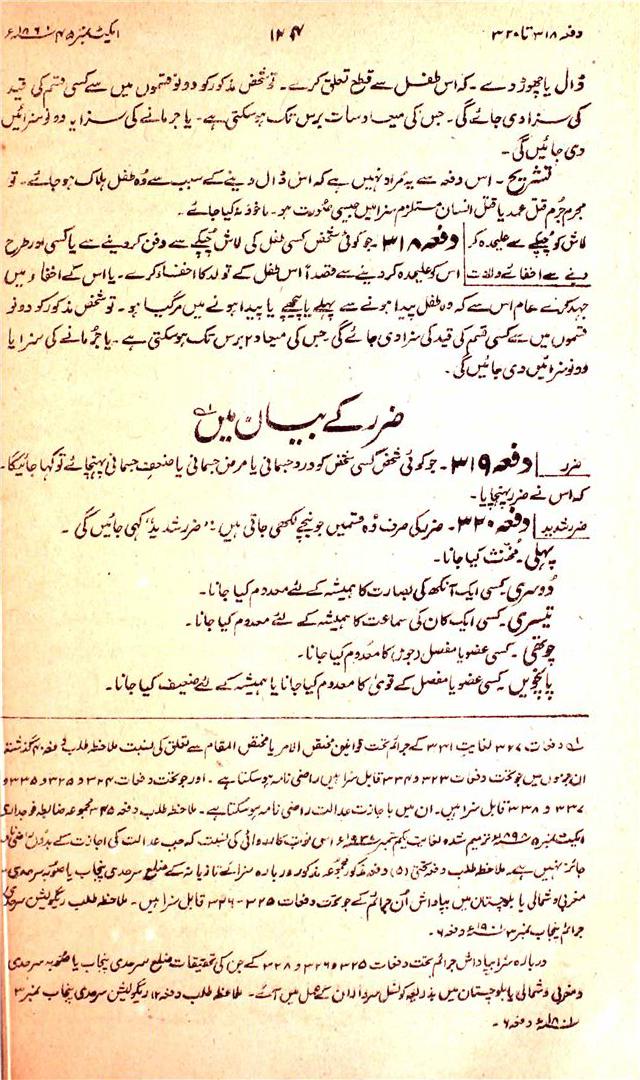 دفعہ ۳۱۸ تا ۳۲۰
۱۷۴
ایکٹ نمبر ۴۵ ۱۸۶۰ء
ڈال یا چھوڑ دے ۔ کہ اس طفل سے قطع تعلق کرے ۔ تو شخص مذکور کو دونو قسموں میں سے کسی قسم کی قید
کی سزا دی جائے گی ۔ جس کی میعاد سات برس تک ہوسکتی ہے ۔ یا جرمانے کی سزا یا دونو سزائیں
دی جائیں گی ۔
تشریح ۔ اس دفعہ سے یہ مُراد نہیں ہے کہ اس ڈال دینے کے سبب سے وُہ طفل ہلاک ہو جائے ۔ تو
مجرم جُرم قتل عمد یا قتل انسان مستلزم سزا میں جیسی صورت ہو ۔ ماخوذ نہ کیا جائے ۔
لاش کو چُپکے سے علیحدہ کر
دینے سے اخفائے ولادت
دفعہ ۳۱۸ ۔ جو کوئی شخص کسی طفل کی لاش چُپکے سے دفن کر دینے سے یا کسی اور طرح
اس کو علیحدہ کر دینے سے قصداً اس طفل کے تولد کا اخفاء کرے ۔ یا اس کے اخفاء میں
جہد کرے عام اس سے کہ وہ طفل پیدا ہونے سے پہلے یا پیچھے یا پیدا ہونے میں مرگیا ہو ۔ تو شخص مذکور کو دونو
قسموں میں سے کسی قسم کی قید کی سزا دی جائے گی ۔ جس کی میعاد ۲ برس تک ہوسکتی ہے ۔ یا جُرمانے کی سزا یا
دونو سزائیں دی جائیں گی ۔
ضرر کے بیان میں
ضرر
دفعہ ۳۱۹ ۔ جو کوئی شخص کسی شخص کو درد جسمانی یا مرض جسمانی یا ضعف جسمانی پہنچائے تو کہا جائیگا ۔
کہ اس نے ضرر پہنچایا ۔
ضرر شدید
دفعہ ۳۲۰ ۔ ضرر کی صرف وُہ قسمیں جو نیچے لکھی جاتی ہیں ”ضرر شدید“ کہی جائیں گی ۔
پہلی ۔ مُخنّث کیا جانا ۔
دُوسری ۔ کسی ایک آنکھ کی بصارت کا ہمیشہ کے لئے معدوم کیا جانا ۔
تیسری ۔ کسی ایک کان کی سماعت کا ہمیشہ کے لئے معدوم کیا جانا ۔
چوتھی ۔ کسی عضو یا مفصل (جوڑ) کا معدوم کیا جانا ۔
پانچویں ۔ کسی عضو یا مفصل کے قویٰ کا معدوم کیا جانا یا ہمیشہ کے لئے ضعیف کیا جانا ۔
دفعات ۳۲۷ لغایت ۳۳۱ کے جرائم تحت قوانین مختص الامر یا مختص المقام سے تعلق کی نسبت ملاحظہ طلب دفعہ ۴۰ گذشتہ
ان جرموں میں جو تحت دفعات ۳۲۳ و ۳۳۴ قابل سزا ہیں راضی نامہ ہوسکتا ہے ۔ اور جو تحت دفعات ۳۲۴ و ۳۲۵ و ۳۳۵ و
۳۳۷ و ۳۳۸ قابل سزا ہیں ۔ ان میں با جازت عدالت راضی نامہ ہوسکتا ہے ۔ ملاحظہ طلب دفعہ ۳۴۵ مجموعہ ضابطہ فوجداری
ایکٹ نمبر ۵ ۱۸۹۸ء ترمیم شدہ لغایت یکم ستمبر ۱۹۳۸ء اس نوٹ کا کاروائی کی نسبت کہ جب عدالت کی اجازت کے بدُوں راضی نامہ
جائز نہیں ہے ۔ ملاحظہ طلب دفعہ تحتی (۵) دفعہ مذکور مجموعہ مذکور دربارہ سزائے تازیانہ کے ضلع سرحدی پنجاب یا صُوبہ سرحدی
مغربی و شمالی یا بلوچستان میں بپاداش اُن جرائم کے جو تحت دفعات ۳۲۵-۳۲۶ قابل سزا ہیں ۔ ملاحظہ طلب ریگولیشن سرحدی
جرائم پنجاب نمبر ۳ ۱۹۰۱ء دفعہ ۶ ۔
دربارہ سزا بپاداش جرائم تحت دفعات ۳۲۵ و ۳۲۶ و ۳۲۸ کے جن کی تحقیقات ضلع سرحدی پنجاب یا صُوبہ سرحدی
و مغربی و شمالی یا بلوچستان میں بذریعہ کونسل سرداران کے عمل میں آئے ۔ ملاحظہ طلب دفعہ ۱۲ ریگولیشن سرحدی پنجاب نمبر ۳
دفعہ ۶ ۔